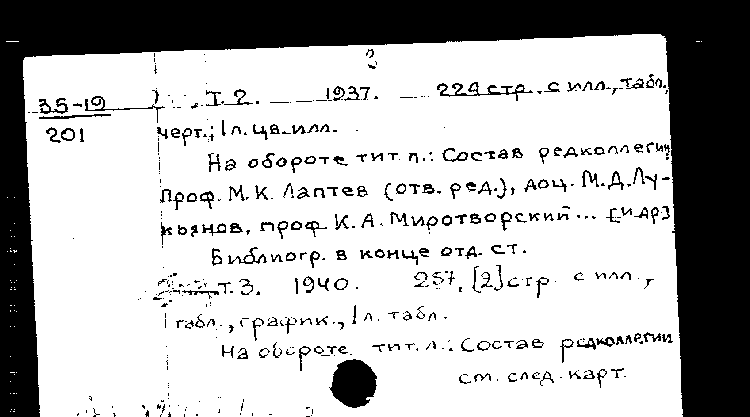 3
35-19 Т. 2. 1937. 224 стр. с илл., табл.,
201 черт.; 1 л. цв. илл.
На обороте тит. л.: Состав редколлегии
проф. М. К. Лаптев (отв. ред.), доц. М. Д. Лу-
кьянов, проф. К. А. Миротворский ... [и др]
Библиогр. в конце отд. ст.
Т. 3. 1940. 257, [2] стр. с илл.,
табл., график., 1 л. табл.
На обороте тит. л.: Состав редколлегии
см. след. карт.